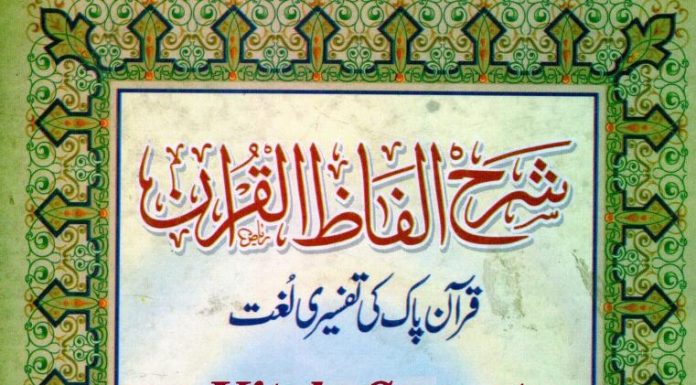 شرح الفاظ القرآن
ریاض
قرآن پاک کی تفسیری لُغت